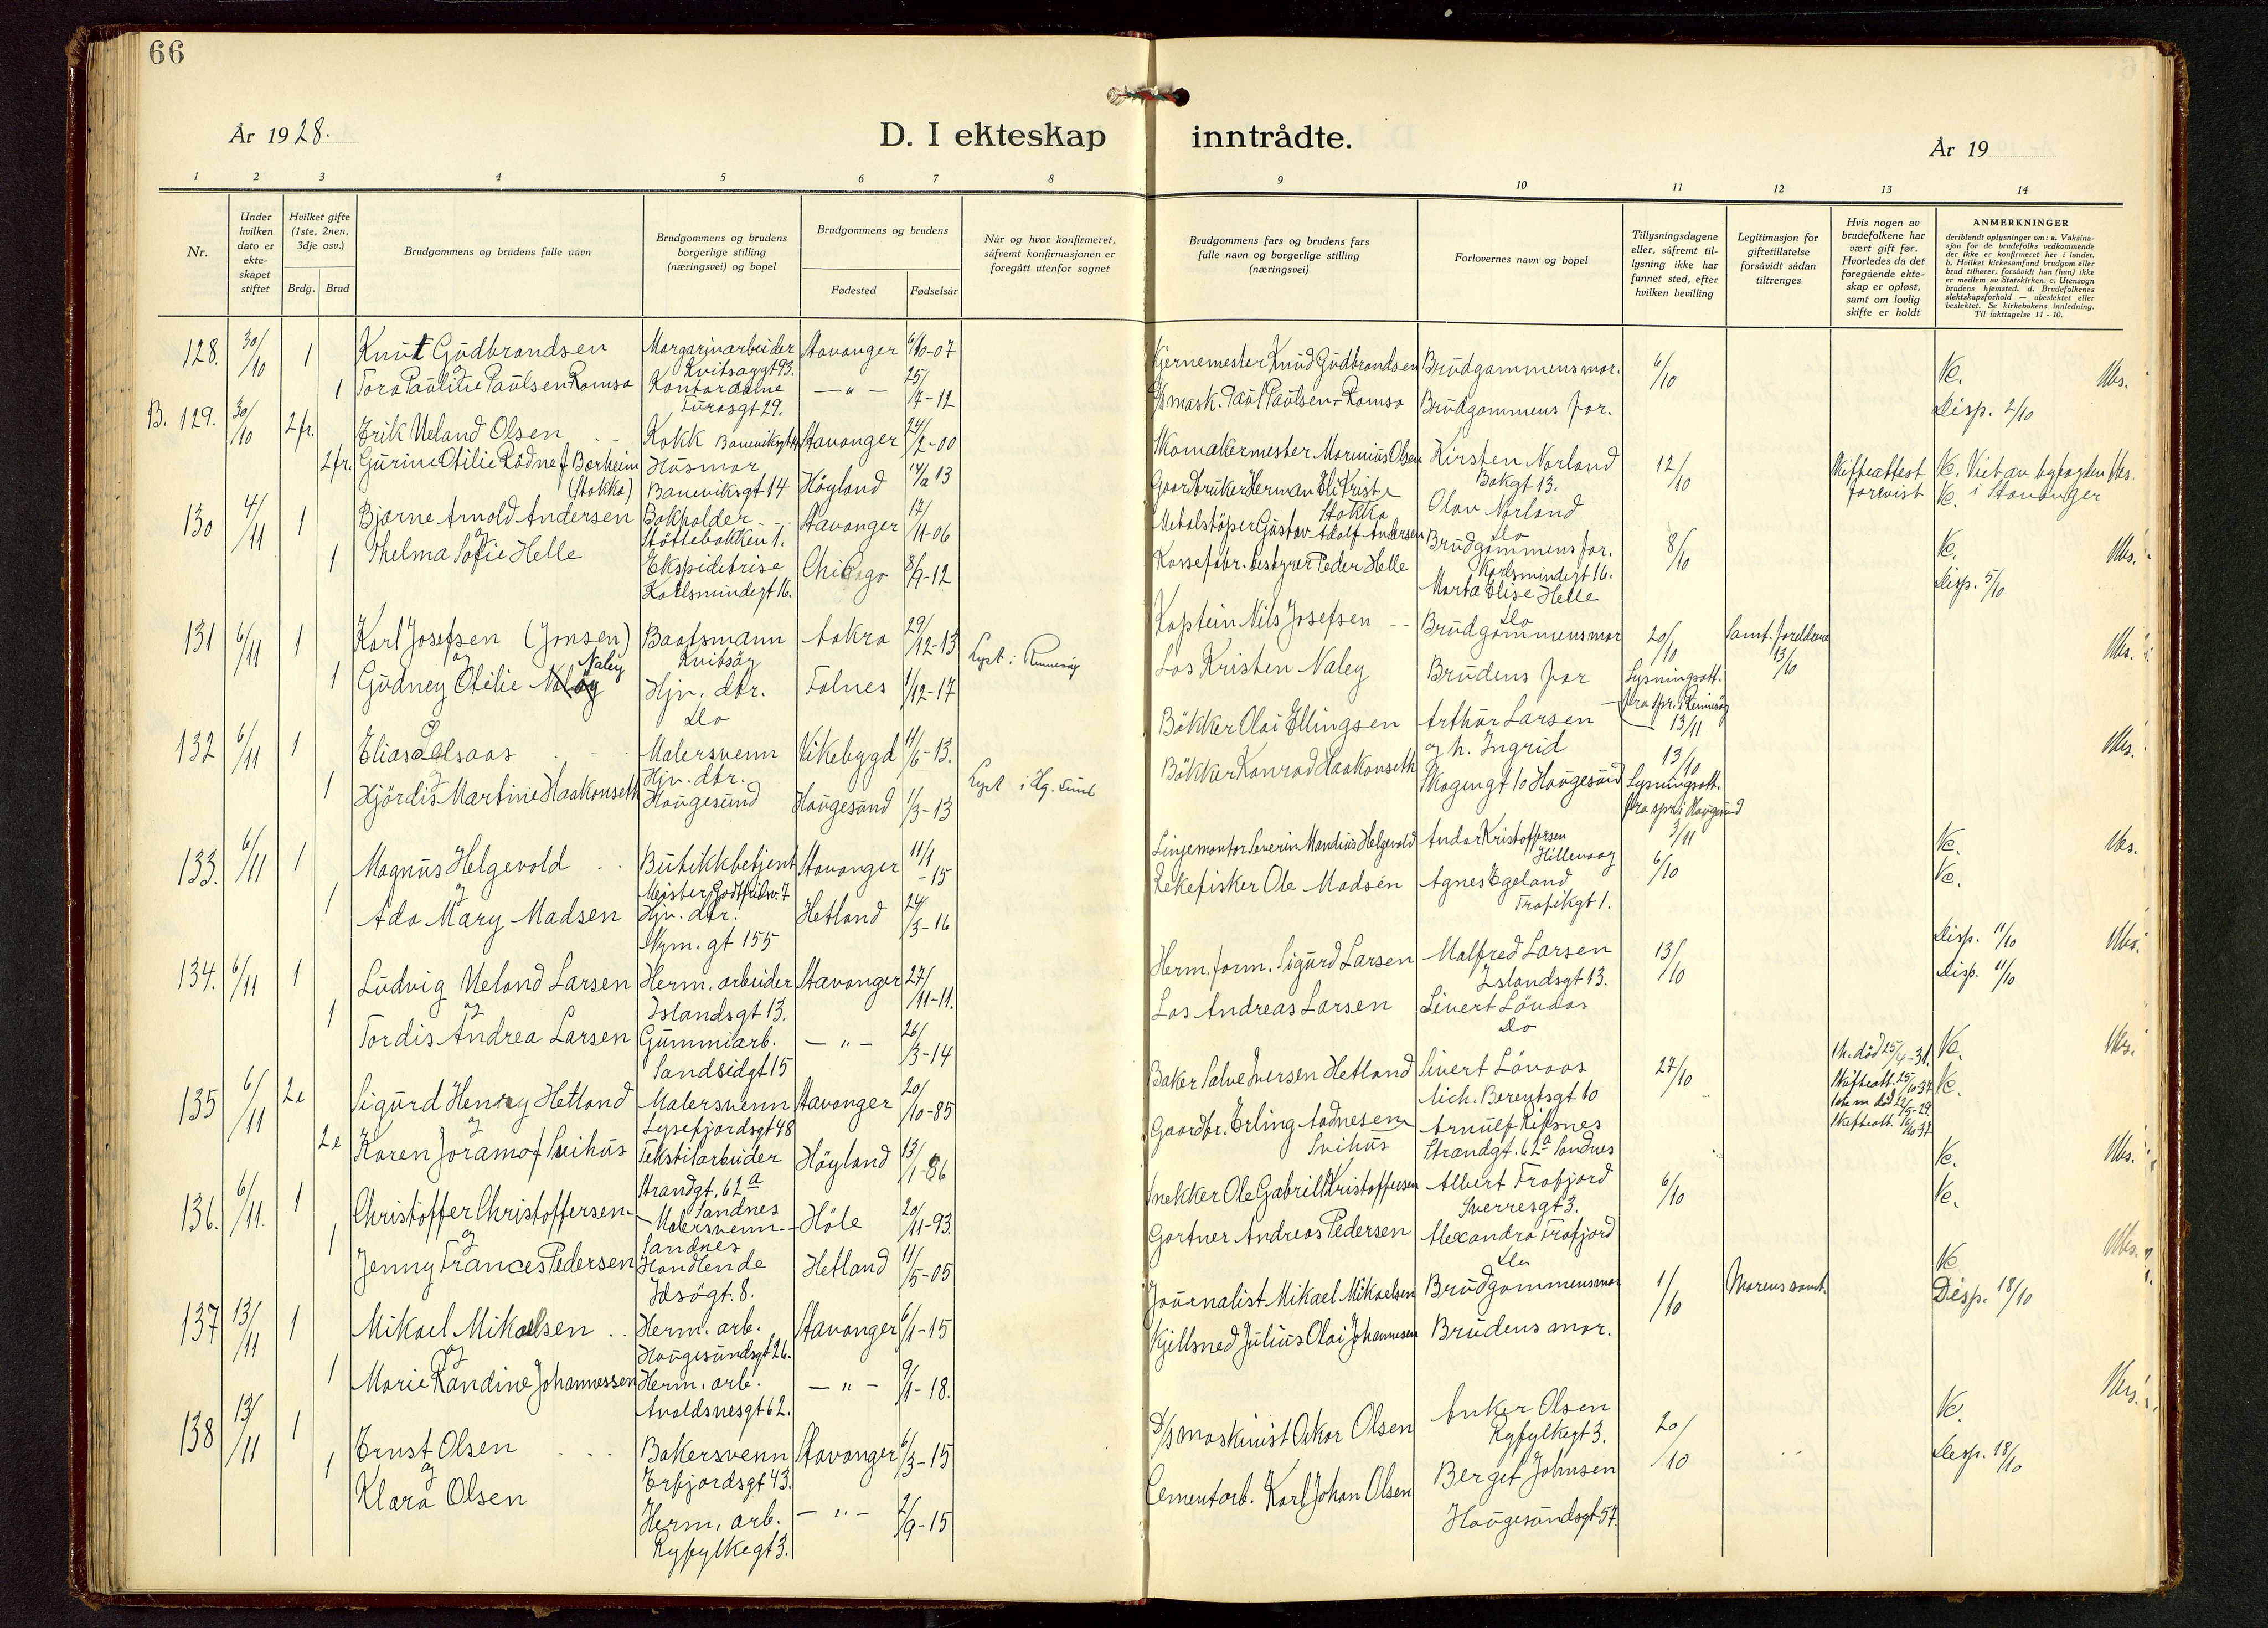 66
År 1928.
D. I ekteskap inntrådte.
År 19
1 2 3 4 5 6 7 8 9 10 11 12 13 14
Nr.
Under hvilken dato er ekteskapet stiftet
Hvilket gifte (1ste, 2nen, 3dje osv.)
Brdg. Brud
Brudgommens og brudens fulle navn
Brudgommens og brudens borgerlige stilling (næringsvei) og bopel
Brudgommens og brudens
Fødested Fødselsår
Når og hvor konfirmeret, såfremt konfirmasjonen er foregått utenfor sognet
Brudgommens fars og brudens fars fulle navn og borgerlige stilling (næringsvei)
Forlovernes navn og bopel
Tillysningsdagene eller, såfremt tillysning ikke har funnet sted, efter hvilken bevilling
Legitimasjon for giftetillatelse forsåvidt sådan tiltrenges
Hvis nogen av brudefolkene har vært gift før. Hvorledes da det foregående ekteskap er opløst, samt om lovlig skifte er holdt
ANMERKNINGER
deriblandt oplysninger om: a. Vaksinasjon for de brudefolks vedkommende der ikke er konfirmeret her i landet. b. Hvilket kirkesamfund brudgom eller brud tilhører, forsåvidt han (hun) ikke er medlem av Statskirken. c. Utensogn brudens hjemsted. d. Brudefolkenes slektskapsforhold — ubeslektet eller beslektet. Se kirkebokens innledning. Til iakttagelse 11 - 10.
128. 30/10 1 Knut Gudbrandsen Margarinarbeider Stavanger 6/10-07 Kjernemester Knud Gudbrandsen Brudgommens mor. 6/10 Ve.
og Kvitsøygt 93.
1 Tora Pauline Paulsen Romsø Kontordame — " — 25/7-12 D/s mask. Paul Paulsen Romsø Brudgommens far. Disp. 2/10
Turasgt 29.
B. 129. 30/10 2 fr. Erik Ueland Olsen Kokk Banevikgt 14 Stavanger 24/2-00 Skomakermester Marinius Olsen Kirsten Norland 12/10 Skifteattest Ve. Viet av byfogden
Bakgt 13. forevist i Stavanger
2 fr. Gurine Otilie Rødne f Borheim Husmor Høyland 13 Gaardbruker Herman Eli Krist Olav Norland Ve.
(Stokka) Banevikgt 14 Stokka Do
130 4/11 1 Bjarne Arnold Andersen Bokholder Stavanger 17/11-06 Metalstøper Gustav Adolf Andersen Brudgommens far. 8/10 Ve.
og Støttebakken 1. Karlsmindegt 16.
1 Thelma Sofie Helle Ekspiditrise Chicago 8/9-12 Kassefabr. bestyrer Peder Helle Marta Elise Helle Disp. 5/10
Karlsmindegt 16. Do
131 6/11 1 Karl Josefsen (Jonsen) Baatsmann Aakra 29/12-13 Lyst i Rennesøy Kaptein Nils Josefsen Brudgommens mor 20/10 Samt. foreldrene 13/10
og Kvitsøy
1 Gudney Otilie Naley Hjv. dtr. Falnes 1/12-17 Los Kristen Naley Brudens far Lysningsatt.
Do fra spr. i Rennesøy 13/11
132 6/11 1 Elias Malersvenn Vikebygd 11/6-13. Lyst i Hg.sund Bøkker Olai Ellingsen Arthur Larsen 13/10
og og h. Ingrid
1 Hjørdis Martine Haakonseth Hjv. dtr. Haugesund Haugesund 1/3-13 Bøkker Konrad Haakonseth Skogengt 10 Haugesund Lysningsatt.
fra spr. i Haugesund 3/11
133. 6/11 1 Magnus Helgevold Butikkbetjent Stavanger 11/1-15 Linjemontør Severin Mandius Helgevold Andor Kristoffersen 6/10 Ve.
og Meister Godtfridsv. 7 Hillevaag
1 Ada Mary Madsen Hjv. dtr. Hetland 24/3-16 Rekefisker Ole Madsen Agnes Egeland Ve.
Nym. gt 155 Trafikgt 1.
134. 6/11 1 Ludvig Ueland Larsen Herm. arbeider Stavanger 27/11-11. Herm. form. Sigurd Larsen Malfred Larsen 13/10 Disp. 11/10
og Islandsgt 13. Islandsgt 13.
1 Tordis Andrea Larsen Gummiarb. — " — 26/3-14 Los Andreas Larsen Sivert Løvaas Disp. 11/10
Sandeidgt 15 Do
135 6/11 2e Sigurd Henry Hetland Malersvenn Stavanger 20/10-85 Baker Salve Iversen Hetland Sivert Løvaas 27/10 1 h. død 25/4-31. Ve.
og Lysefjordsgt 48 Mich. Berentsgt 10 Skifteatt. 25/10-37
2e Karen Joramo f Svihus Tekstilarbeider Høyland 13/1-86 Gaardbr. Erling Aadnesen Arnulf Refsnes Ve.
Strandgt. 62a Sandnes Svihus Strandgt. 62a Sandnes Skifteatt.
136. 6/11. 1 Christoffer Christoffersen Malersvenn Høle 20/11-93. Snekker Ole Gabriel Kristoffersen Albert Frafjord 6/10 Ve.
og Sandnes Sverresgt 3.
1 Jenny Frances Pedersen Handlende Hetland 11/5-05 Gartner Andreas Pedersen Alexandra Frafjord Ve.
Idsøgt. 8. Do
137 13/11 1 Mikael Mikaelsen Herm. arb. Stavanger 6/1-15 Journalist Mikael Mikaelsen Brudgommens mor 1/10 Morens samt. Ve
og Haugesundsgt 26.
1 Marie Randine Johannessen Herm. arb. — " — 9/1-18. Kjillsned Julius Olai Johannesen Brudens mor. Disp. 18/10
Avaldsnesgt 62.
138 13/11 1 Ernst Olsen Bakersvenn Stavanger 6/3-15 D/s maskinist Oskar Olsen Anker Olsen 20/10 Ve.
og Erfjordsgt 43. Ryfylkegt 3.
1 Klara Olsen Herm. arb. — " — 2/9-15 Cementarb. Karl Johan Olsen Berget Johnsen Disp. 18/10
Ryfylkegt 3. Haugesundsgt 57.